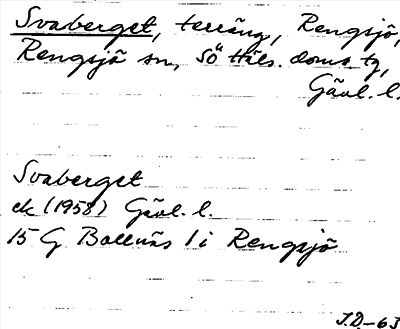 Svaberget, terräng, Rengsjö,
Rengsjö sn, Sö Häls. doms tg,
Gävl. l.
Svaberget
ek (1958) Gävl. l.
15 G Bollnäs 1 i Rengsjö
J.D.-63